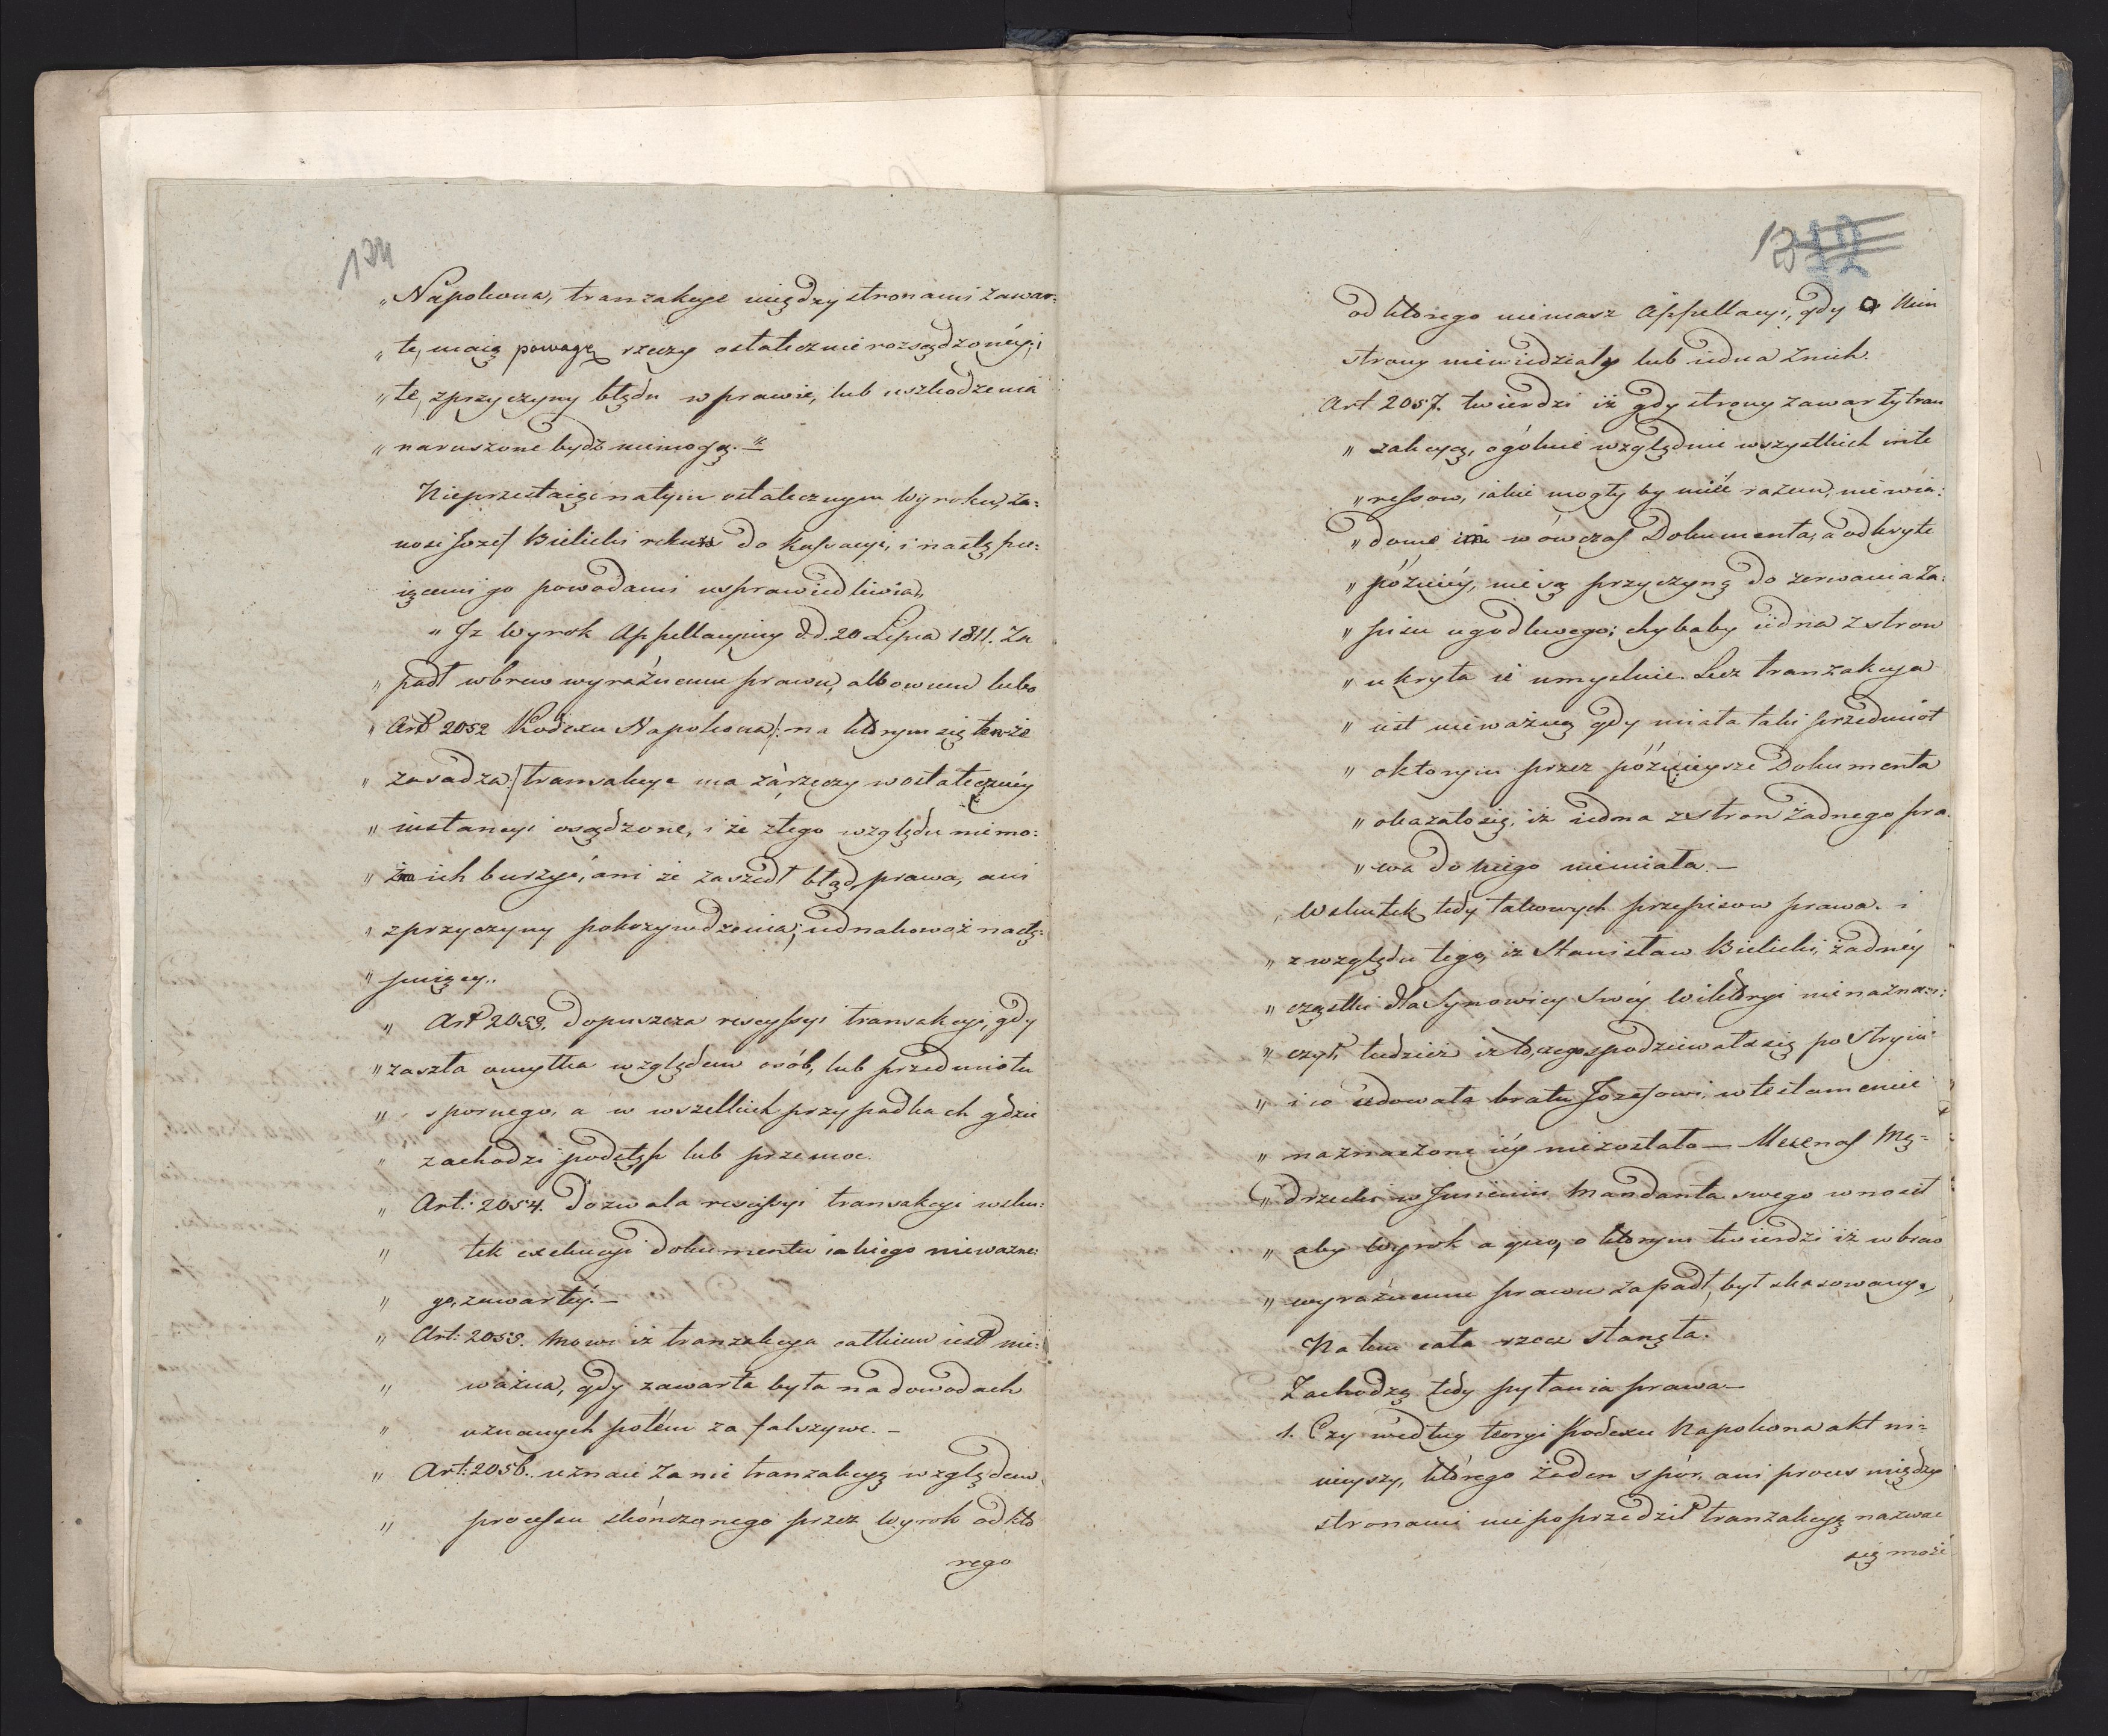 „Napoleona, tranzakcye między stronami zawar-
„te, maią powagę rzeczy ostatecznie rozsądzonéy; i
„te, zprzyczyny błędu w prawie, lub uszkodzenia
„naruszone bydź niemogą.“
Nieprzestaiąc natym ostatecznym Wyroku, za-
nosi Jozef Bielicki rekurs do Kassacyi, i nastę pu-
iącemi go powodami usprawiedliwia„
„Jz Wyrok Appellacyiny d.d. 20 Lipca 1811. Za
„padł wbrew wyraźnemu prawu, albowiem lubo
„Art 2052 Kodexu Napoleona /: na którym się tenże
„zasadza :/ transakcye ma zà rzeczy w ostateczney
„instancyi osądzone, i że ztego względu niemo-
„żna ich burzyć, ani że zaszedł błąd prawa, ani
„zprzyczyny pokrzywdzenia; iednakowoż nastę-
„puiący„
„Art 2053. Dopuszcza rescyssyi transakcyi, gdy
„zaszła omyłka względem osób, lub przedmiotu
„spornego, a w wszelkich przypadkach gdzie
„zachodzi podstęp lub przemoc.
„Art: 2054. Dozwala rescissyi transakcyi wsku-
„tek exekucyi dokumentu iakiego nieważne-
„go, zawartéy.—
„Art: 2055. mowi iż tranzakcya całkiem iest nie-
„ważna, gdy zawarta była na dowodach
„uznanych potém za fałszywe.—
„Art: 2056. uznaie za nic tranzakcyę względem
„processu skończonego przez Wyrok od któ
rego
134
od którego niemasz Appellacyi, gdy o Nim
strony niewiedziały lub iedna Znich.
Art 2057. twierdzi iż gdy strony zawarły tran
„zakcyą, ogólnie względnie wszystkich inte
„ressow, iakie mogły by mieć razem, niewia-
„dome im wówczas Dokumenta, a odkryte
„późniéy, nie są przyczyną do zerwania Za-
„pisu ugodliwego; chybaby iedna z stron
„ukryła ie umyślnie. Lecz tranzakcya
„iest nieważną gdy miała taki przedmiot
„oktorym przez późnieysze Dokumenta
„okazało się, iż iedna zstron żadnego pra-
„wa do niego niemiała.—
„Wskutek tedy takowych przepisow prawa. i
„z względu tego, iz Stanisław Bielicki, żadnéy
„cząstki dla Synowicy swéy Wiktoryi nienazna-
„czył, tudzież iz to, czego spodziewała się po Stryiu
„i co iedowała bratu Jozefowi, w testamencie
„naznaczone iéy niezostało — Mecenas Mę-
„drzecki w Jmieniu Mandanta swego wnosił
„aby Wyrok a quo, o którym twierdzi iż wbrew
„wyraźnemu prawu zapadł, był skasowany„
Na tem cała rzecz stanęła.
Zachodzą tedy pytania prawa—
1. Czy według teoryi Kodexu Napoleona akt ni-
nieyszy, którego żaden spór, ani proces między
stronami niepoprzedził tranzakcyą nazwać
się może